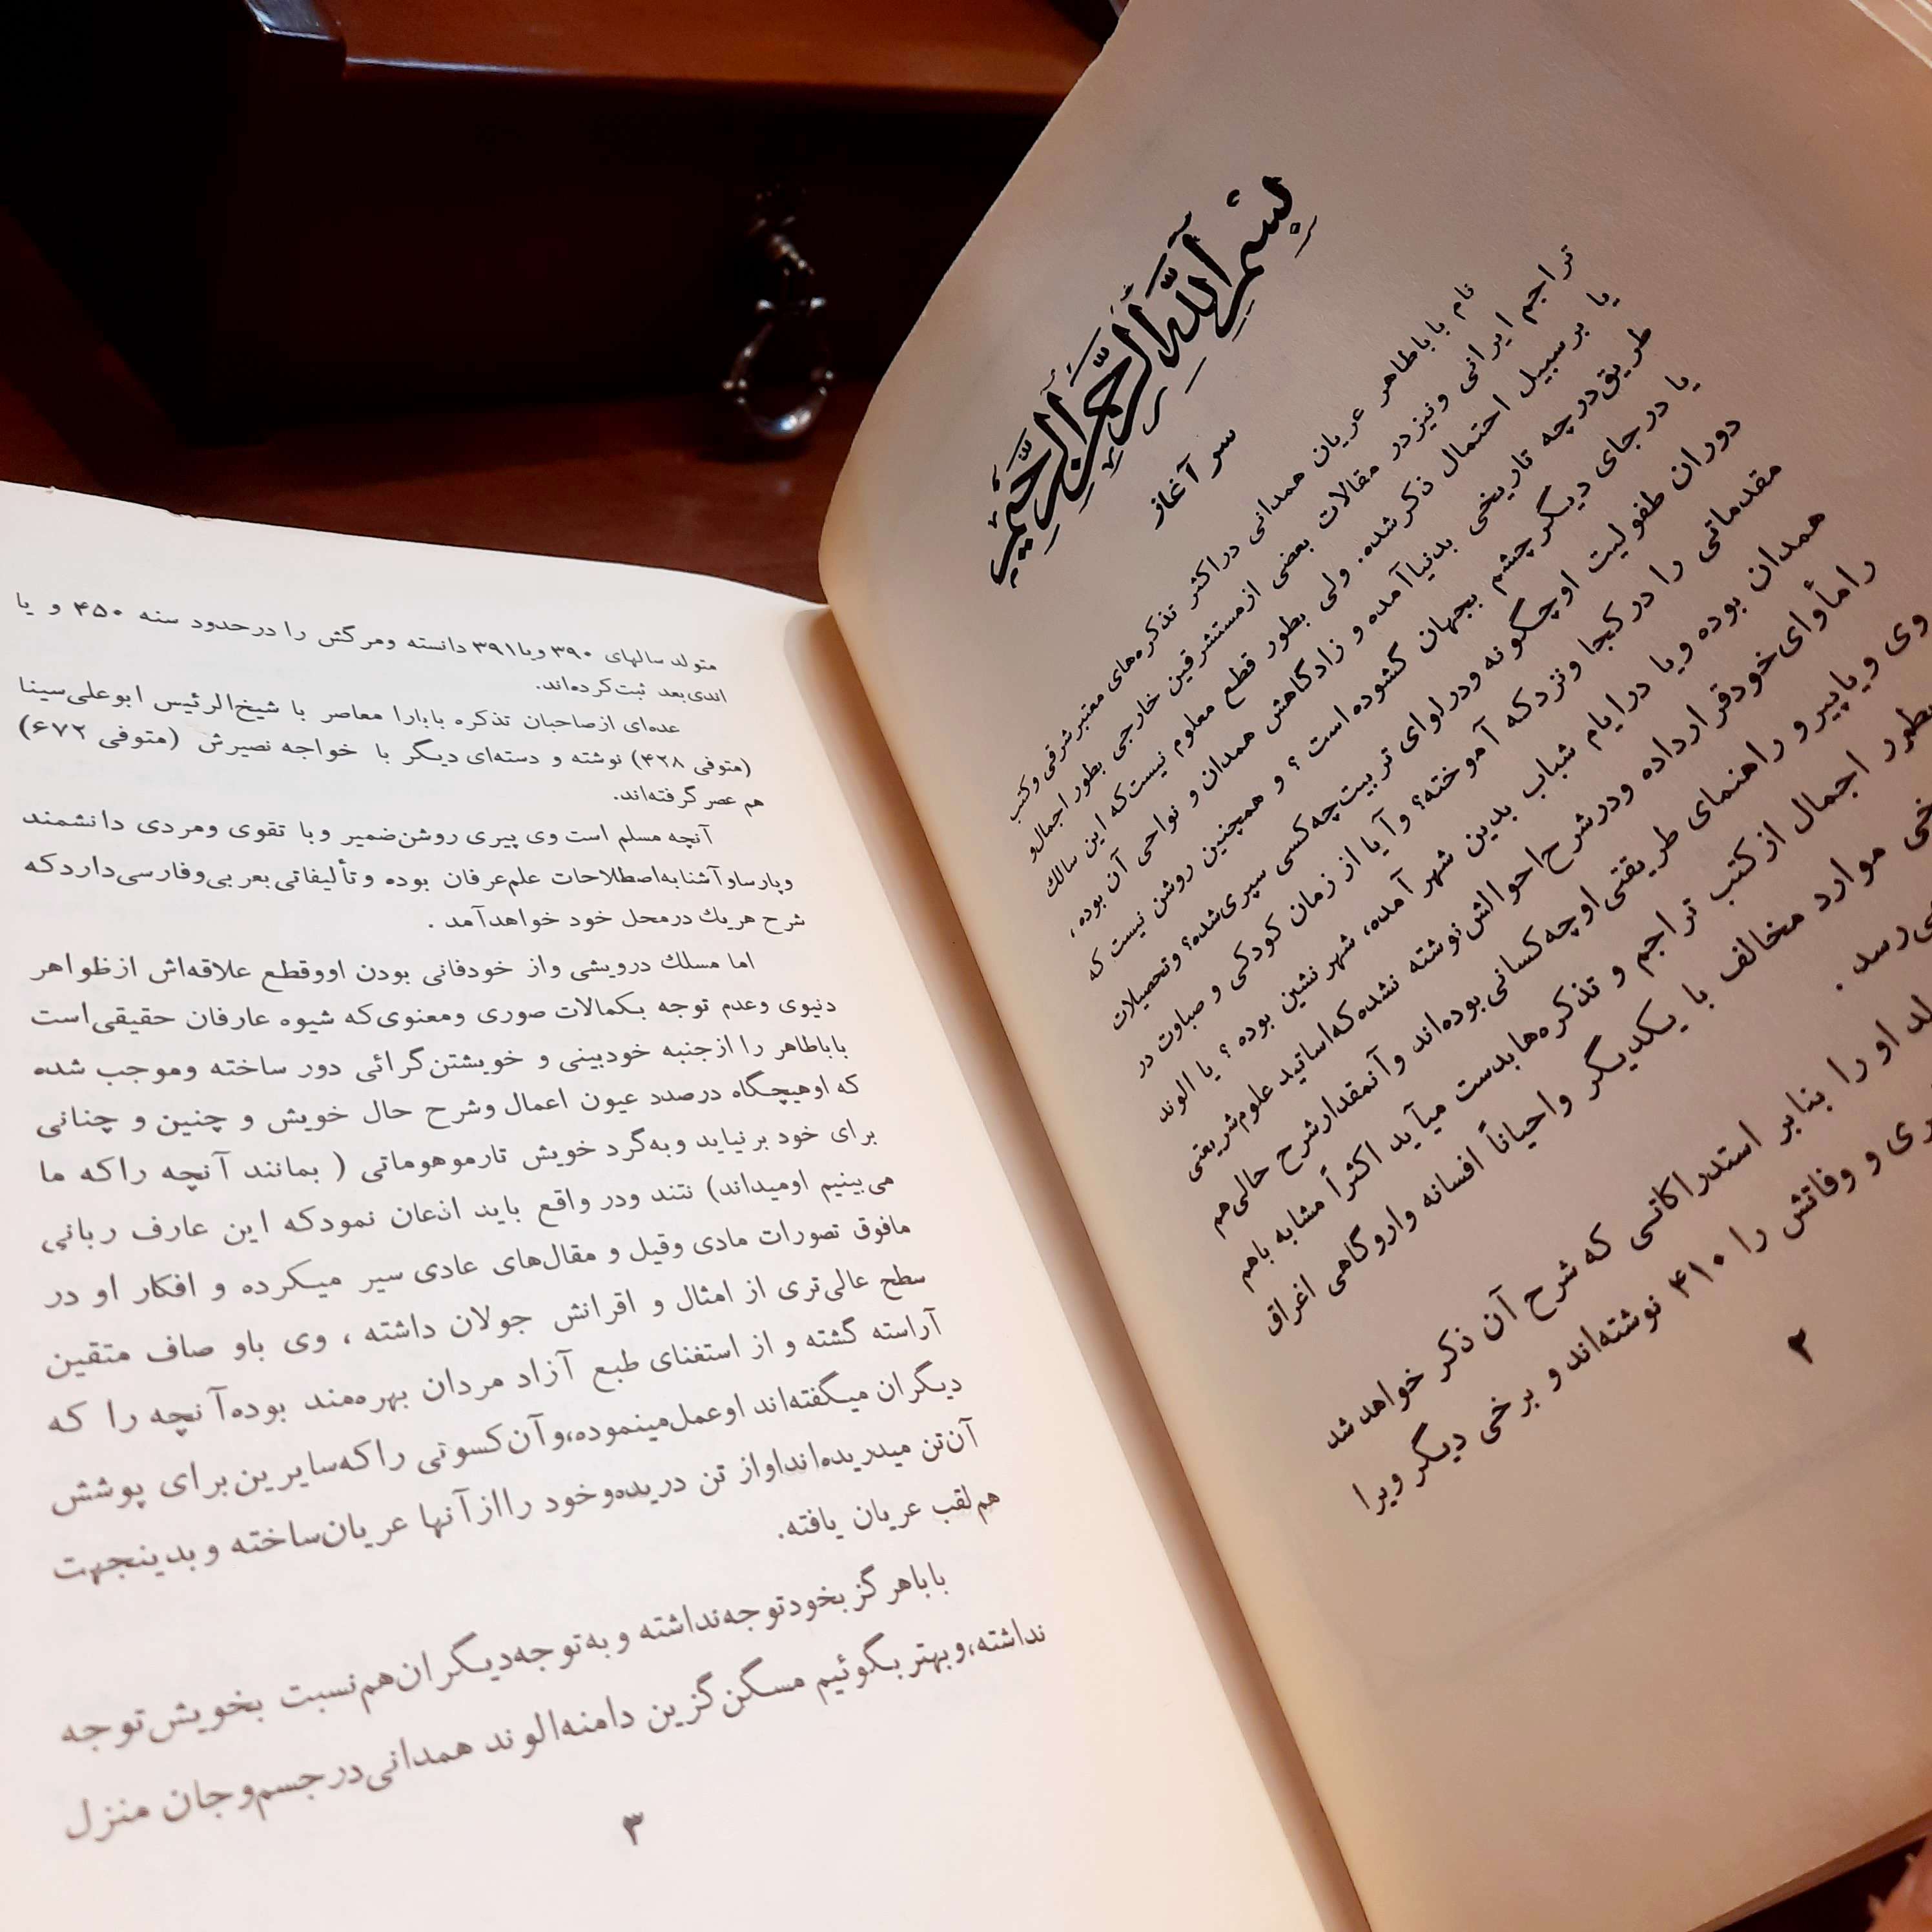 بِسْمِ اللهِ الرَّحْمنِ الرَّحيمِ
سر آغاز
نام باباطاهر عریان همدانی دراکثر تذکره‌های معتبرشرقی وکتب
تراجم ایرانی ونیزدر مقالات بعضی ازمستشرقین خارجی بطور اجمال‌و
یا برسبیل احتمال ذکرشده. ولی بطور قطع معلوم نیست‌که این سالك
طریق‌درچه تاریخی بدنیاآمده و زادگاهش همدان و نواحی آن بوده،
یا درجای دیگرچشم بجهان گشوده است؟ و همچنین روشن نیست که
دوران طفولیت اوچگونه ودرلوای تربیت‌چه‌کسی سپری‌شده؟ وتحصیلات
مقدماتی را درکجا ونزدکه آموخته؟ وآیا از زمان کودکی و صباوت در
همدان بوده ویا درایام شباب بدین شهر آمده، شهرنشین بوده؟ یا الوند
رامأوای‌خودقرارداده ودرشرح‌احوالش‌نوشته نشده‌که‌اساتید علوم‌شریعتی
وی ویاپیرو راهنمای طریقتی‌اوچه‌کسانی‌بوده‌اند وآنمقدارشرح حالی‌هم
اجمال ازکتب تراجم و تذکره‌هابدست میآید اکثراً مشابه باهم
موارد مخالف با یکدیگر واحیاناً افسانه واروگاهی اغراق
رسد.
او را بنابر استدراکاتی که شرح آن ذکر خواهدشد
و وفاتش را ۴۱۰ نوشته‌اند و برخی دیگر ویرا
۲
متولد سالهای ۳۹۰ ویا۳۹۱ دانسته ومرگش را درحدود سنه ۴۵۰ و یا
اندی‌بعد ثبت‌کرده‌اند.
عده‌ای ازصاحبان تذکره بابارا معاصر با شیخ‌الرئیس ابوعلی‌سینا
(متوفی ۴۲۸) نوشته و دسته‌ای دیگر با خواجه نصیرش (متوفی ۶۷۲)
هم عصر گرفته‌اند.
آنچه مسلم است وی پیری روشن‌ضمیر وبا تقوی ومردی دانشمند
وپارساوآشنابه‌اصطلاحات علم‌عرفان بوده وتألیفاتی‌بعربی‌وفارسی‌داردکه
شرح هریك درمحل خود خواهدآمد.
اما مسلك درویشی واز خودفانی بودن اووقطع علاقه‌اش ازظواهر
دنیوی وعدم توجه بکمالات صوری ومعنوی‌که شیوه عارفان حقیقی‌است
باباطاهر را ازجنبه خودبینی و خویشتن‌گرائی دور ساخته وموجب شده
که اوهیچگاه درصدد عیون اعمال وشرح حال خویش و چنین و چنانی
برای خود برنیاید وبه‌گرد خویش تارموهوماتی ( بمانند آنچه راکه ما
می‌بینیم اومیداند) نتند ودر واقع باید اذعان نمودکه این عارف ربانی
مافوق تصورات مادی وقیل و مقال‌های عادی سیر میکرده و افکار او در
سطح عالی‌تری از امثال و اقرانش جولان داشته، وی باو صاف متقین
آراسته گشته و از استغنای طبع آزاد مردان بهره‌مند بوده‌آنچه را که
دیگران میگفته‌اند اوعمل‌مینموده،وآن‌کسوتی راکه‌سایرین‌برای پوشش
آن‌تن میدریده‌انداواز تن دریده‌وخود راازآنها عریان‌ساخته وبدینجهت
هم‌لقب عریان یافته.
باباهرگز بخودتوجه‌نداشته وبه‌توجه‌دیگران‌هم‌نسبت بخویش‌توجه
نداشته،وبهتر بگوئیم مسکن‌گزین دامنه‌الوند همدانی‌درجسم‌وجان منزل
۳